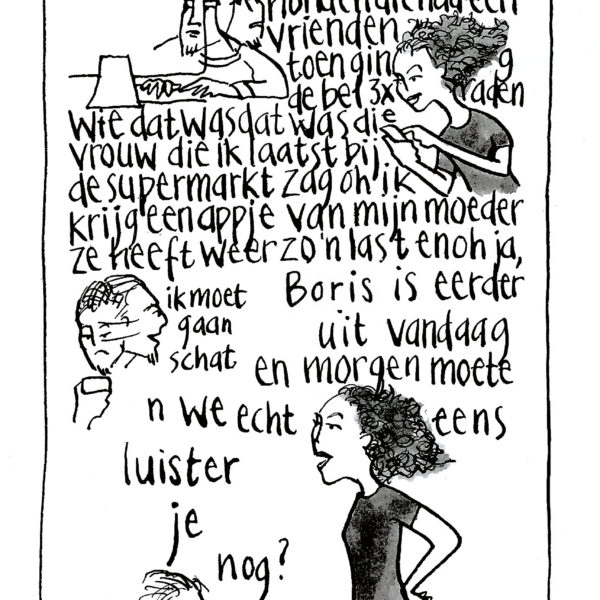 had een
vrienden
toen gin g
de bel 3x raden
wie dat was dat was die
vrouw die ik laatst bij
de supermarkt zag oh ik
krijg een appje van mijn moeder
ze heeft weer zo'n last en oh ja,
Boris is eerder
uit vandaag
en morgen moete
n we echt eens
ik moet
gaan
schat
luister
je
nog?